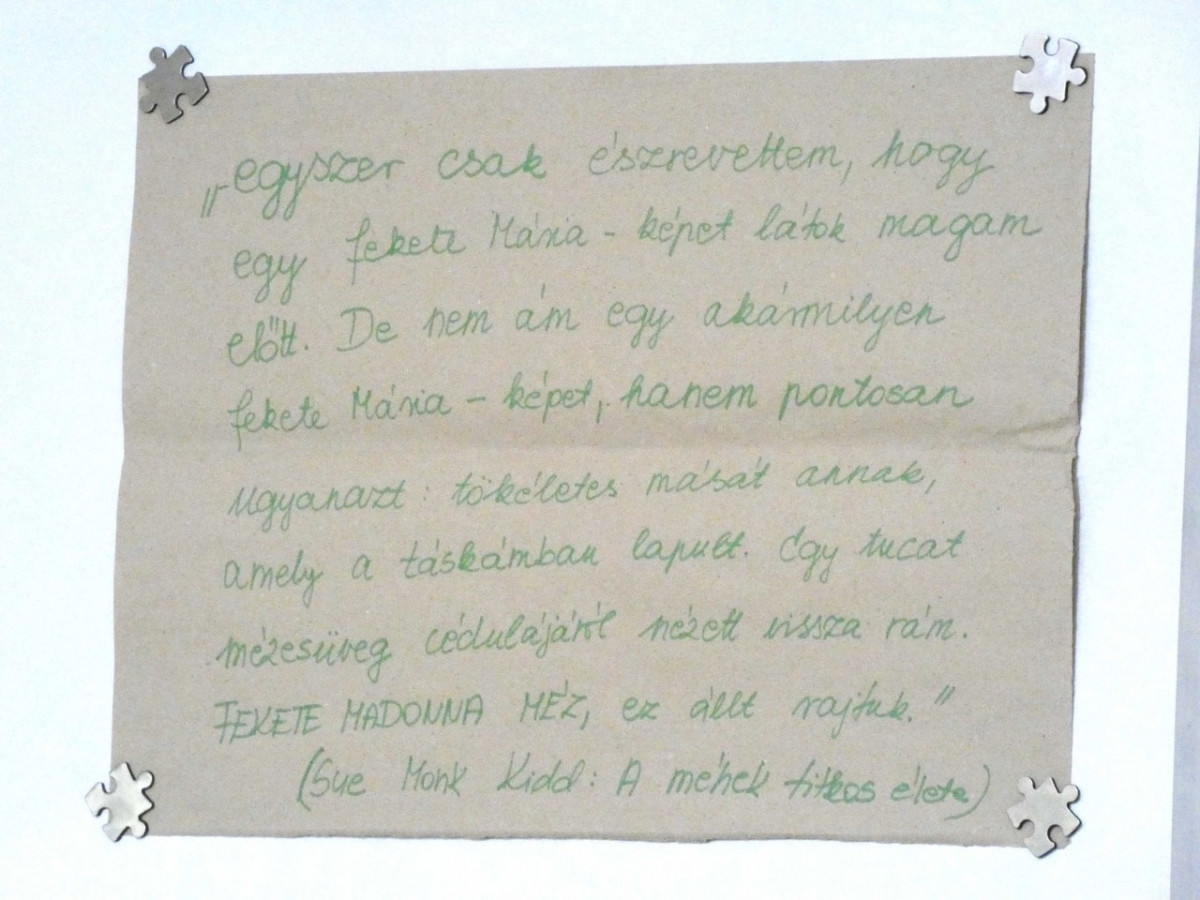 „egyszer csak észrevettem, hogy
egy fekete Mária - képet látok magam
előtt. De nem ám egy akármilyen
fekete Mária - képet, hanem pontosan
ugyanazt: tökéletes mását annak,
amely a táskámban lapult. Egy tucat
mézesüveg cédulájáról nézett vissza rám.
FEKETE MADONNA MÉZ, ez állt rajtuk."
(Sue Monk Kidd: A méhek titkos élete)